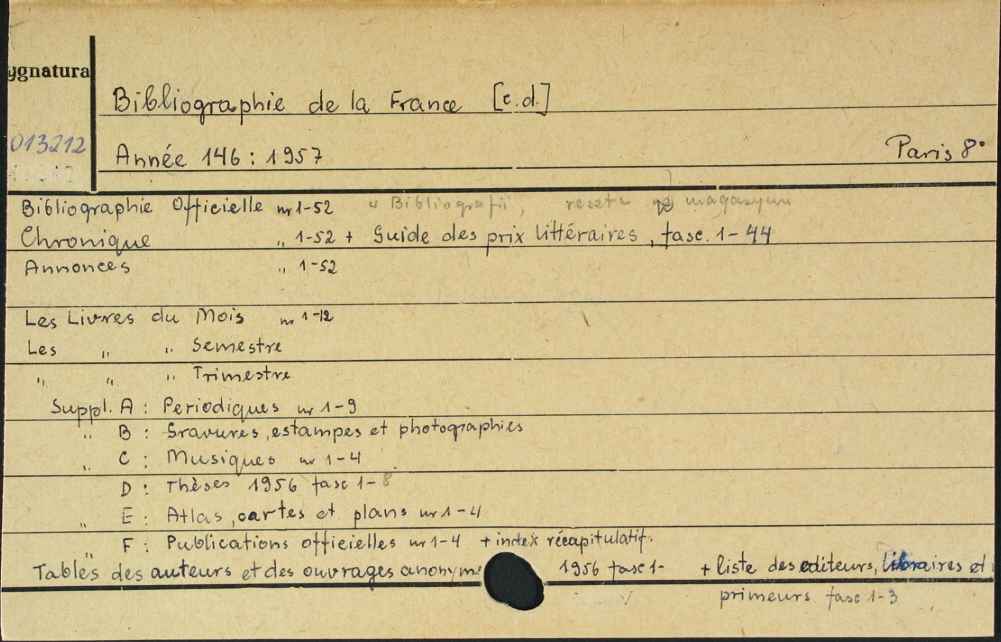 ygnatura
Bibliographie de la France [c.d.]
013212
Année 146 : 1957 Paris 8°
Bibliographie Officielle nr 1-52 u Bibliografii, reszta w magazynie
Chronique " 1-52 + Guide des prix littéraires, fasc. 1-44
Annonces " 1-52
Les Livres du Mois nr 1-12
Les " " Semestre
" " " Trimestre
Suppl. A : Periodiques nr 1-9
" B : Gravures, estampes et photographies
" C : Musiques nr 1-4
D : Thèses 1956 fasc 1-8
" E : Atlas, cartes et plans nr 1-4
" F : Publications officielles nr 1-4 + index récapitulatif.
Tables des auteurs et des ouvrages anonyme 1956 fasc 1- + liste des editeurs, libraires et
primeurs fasc 1-3